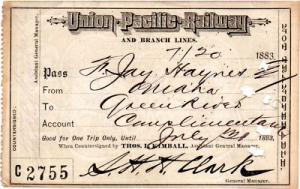 Union Pacific Railway
AND BRANCH LINES.
7/20 1883
Pass F. Jay Haynes
From Omaha
To Green River
Account Complimentary
Good for One Trip Only, Until July 1883,
When Countersigned by THOS. L. KIMBALL, Assistant General Manager.
S. H. H. Clark
General Manager.
C 2755
COUNTERSIGNED:
Assistant General Manager.